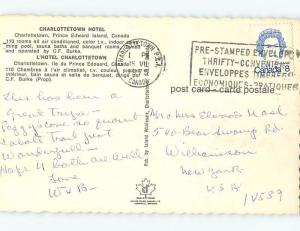 CHARLOTTETOWN HOTEL
Charlottetown, Prince Edward Island, Canada
110 rooms all air conditioned, color t.v., indoor swim-
ming pool, sauna baths and banquet rooms. Owned
and operated by C.F. Burke.
L'HOTEL CHARLOTTETOWN
Charlottetown, Ile du Prince Edouard, Canada
110 Chambres à l'air climatisé, t.v. couleur, piscine
intérieur, bain sauna et salle de banquet. dirigé par
C.F. Burke (Prop).
CHARLOTTETOWN P.E.I.
PM
CANADA
PRE-STAMPED ENVELOPES
THRIFTY-CONVENIENT
ENVELOPPES TIMBRÉES
ECONOMIQUES-PRATIQUES
Canada 8
post card - carte postale
This has been a
Great Trip.
Peggy's Cove and
Cabot Trail just
Wonderful
Hope 4 both are well
Love
W & B-
Mr & Mrs Ellwood Nash
Bear Swamp Rd
Williamson
New York
U S A